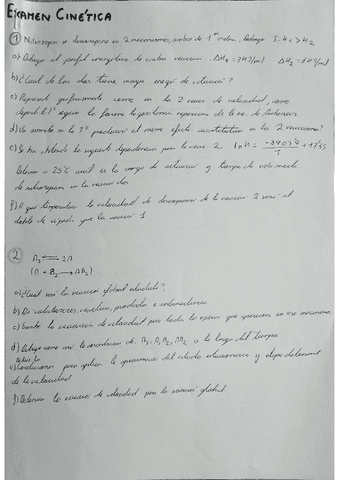 EXAMEN CINÉTICA
① Nitrozepan se descompone en 2 mecanismos, ambos de 1er orden. Dibuja si K1 > K2
a) Dibuja el perfil energético de ambas reacciones. ΔH1 = 3 kJ/mol ΔH2 =
b) ¿Cuál de las dos tiene mayor energía de activación?
c) Representa gráficamente como en las 2 ctes de velocidad, como
depende la Tª según la forma logarítmica de la ec. de Arrhenius
d) Un aumento en la Tª producirá el mismo efecto cuantitativo en las 2 reacciones?
e) Se ha obtenido la siguiente dependencia para la reacc. 2. ln K =
Determina a 25°C cuál es la energía de activación y tiempo de vida media
de nitrozepan en la reacción dos
f) A qué temperatura la velocidad de descomposición de la reacción 2 será el
doble de rápida que la reacción 1
②
A2 ⇌ 2A
(A + B2 → AB2)
a) ¿Cuál será la reacción global estudiada?
b) Di catalizadores, reactivos, productos e intermediarios
c) Escribe la ecuación de velocidad para todas las especies que aparecen en ese mecanismo
d) Dibuja como varía la concentración de A2, A, B2, AB2 a lo largel del tiempo
e) Condiciones para aplicar la aproximación del estado estacionario y etapa determinante
de la velocidad
f) Determina la ecuación de velocidad para la reacción global.